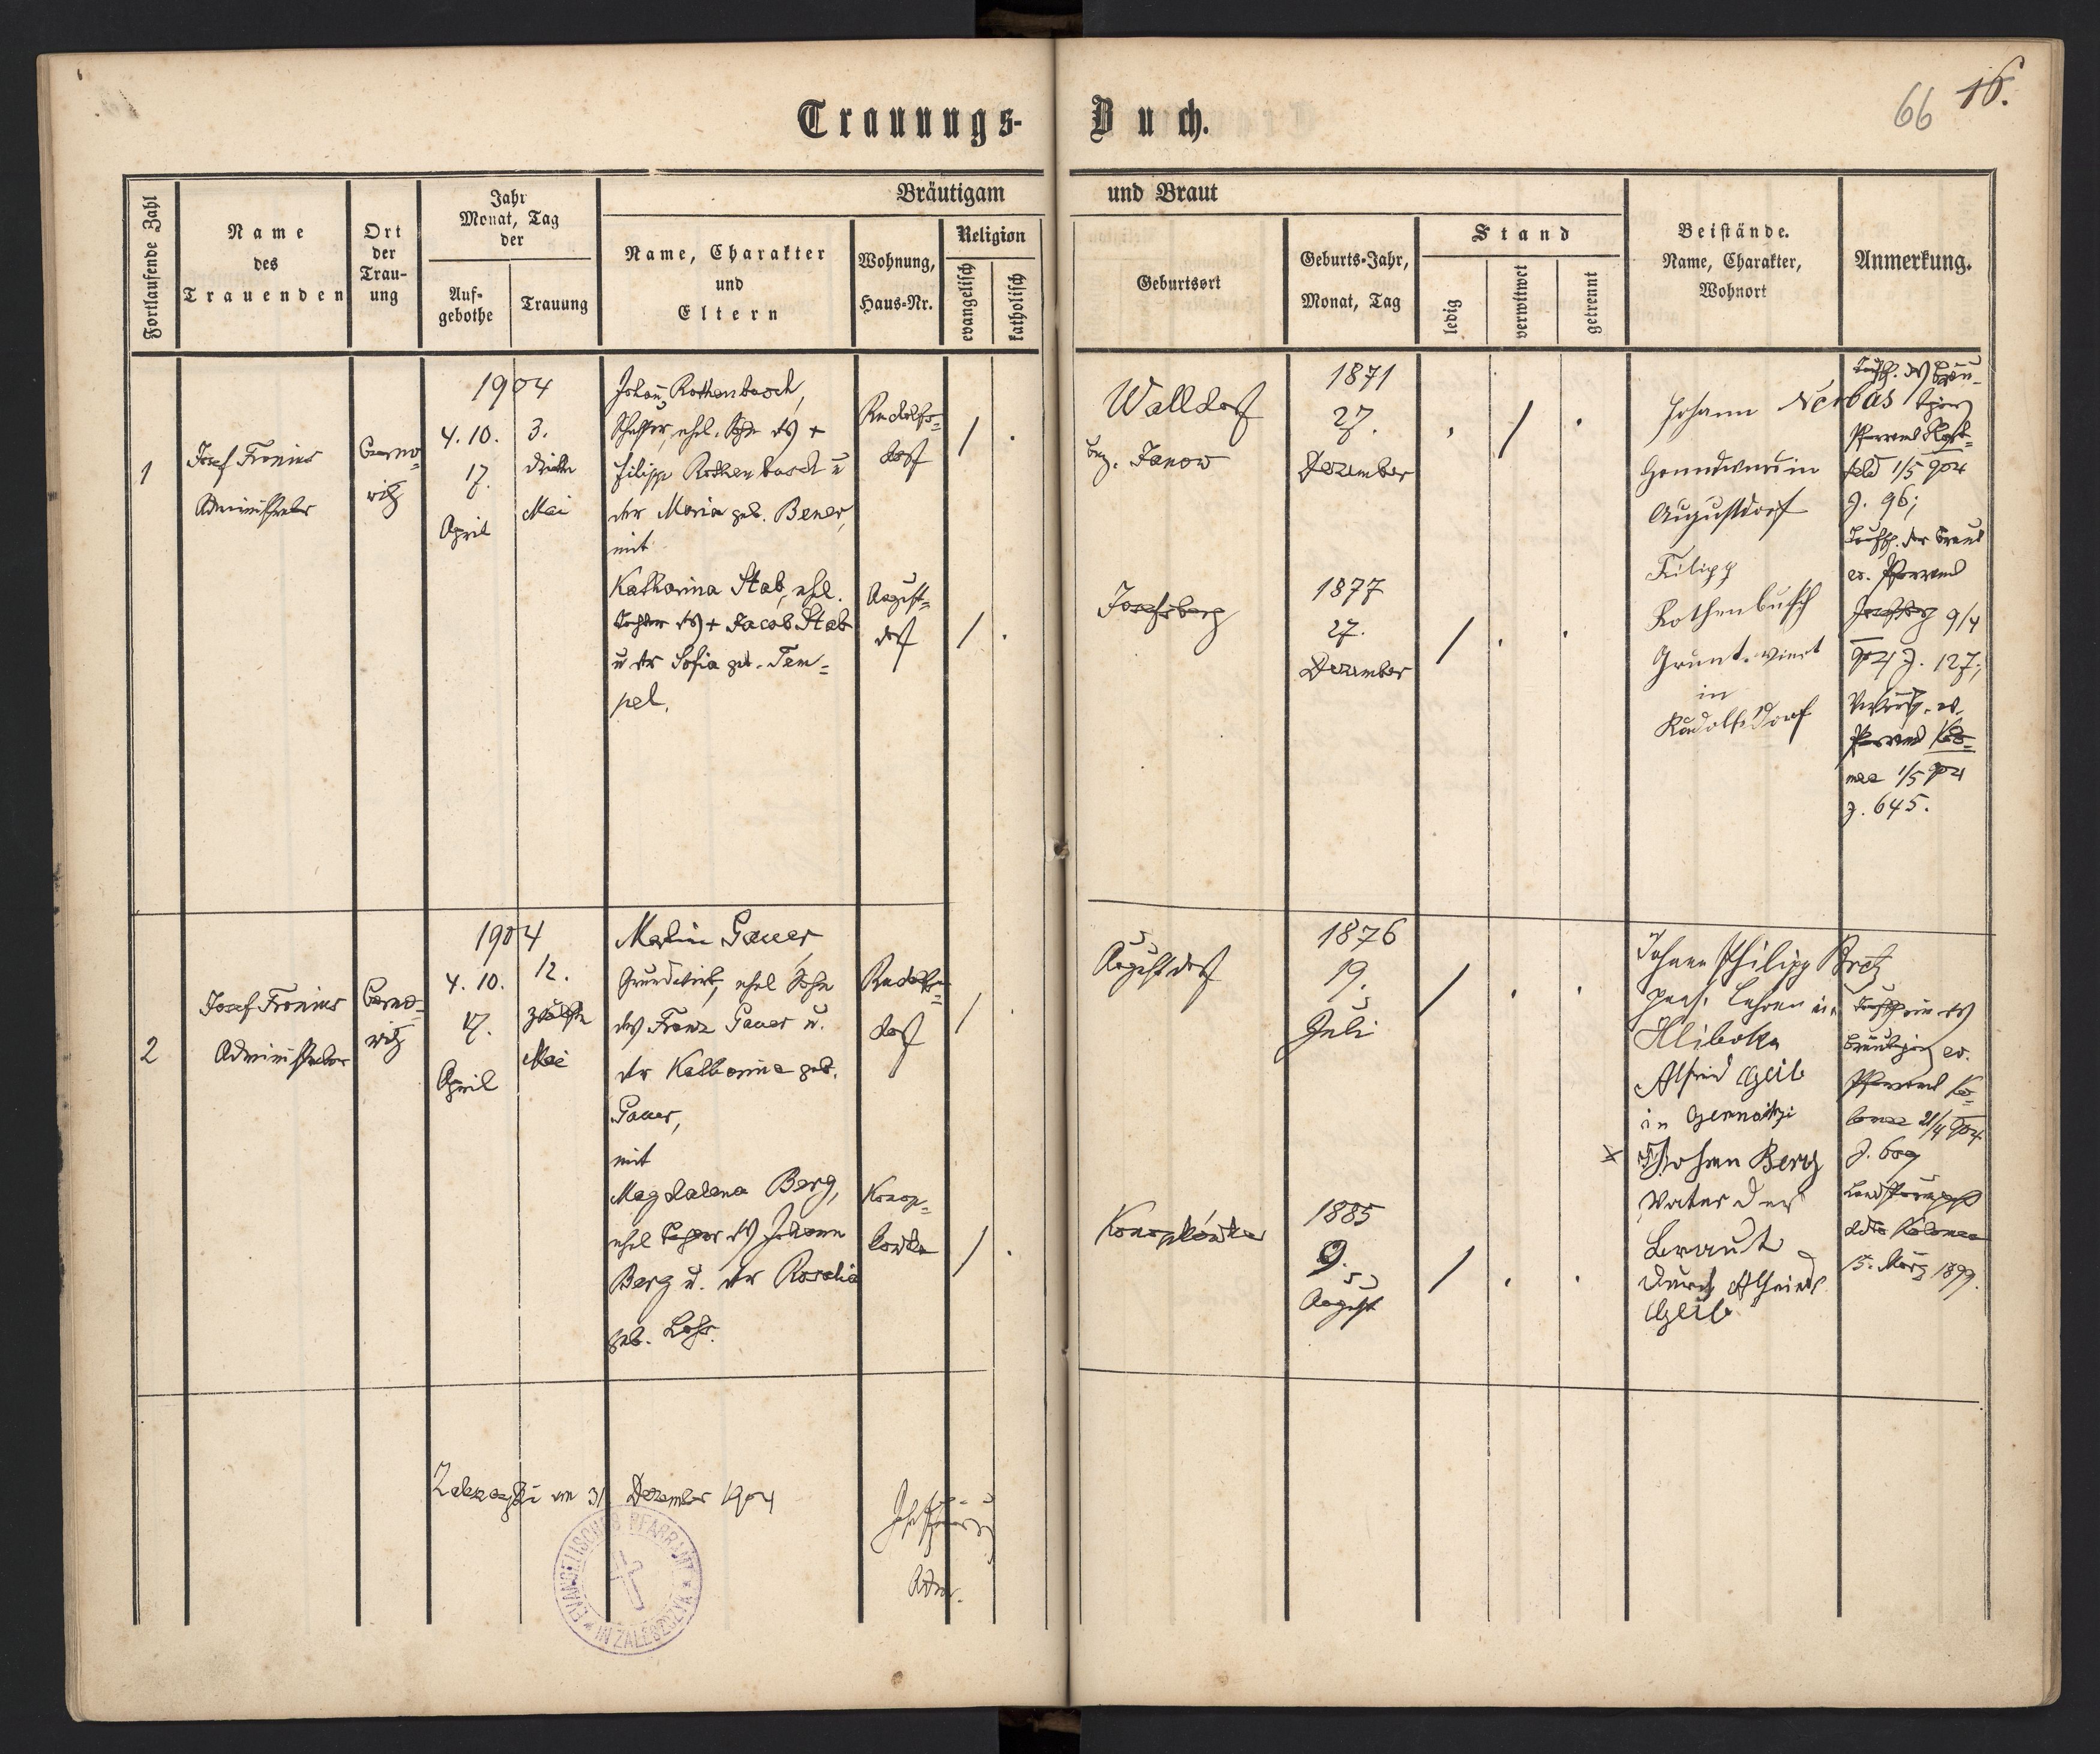 66 16.
Trauungs-Buch.
Fortlaufende Zahl
Name
des
Trauenden
Ort
der
Trau-
ung
Jahr
Monat, Tag
der
Auf-
gebothe
Trauung
Bräutigam und Braut
Name, Charakter
und
Eltern
Wohnung,
Haus-Nr.
Religion
evangelisch
katholisch
Geburtsort
Geburts-Jahr,
Monat, Tag
Stand
ledig
verwittwet
getrennt
Beistände.
Name, Charakter,
Wohnort
Anmerkung.
1
Josef Fronius
Administrator
Czerno-
witz
1904
4. 10.
17.
April
3.
dritten
Mai
Johann Rothenbusch,
ehel. Sohn des +
Filipp Rothenbusch u
der Maria geb. Bener,
mit
Katharina Stab, ehel.
Tochter des + Jacob Stab
u der Sofia geb. Tem-
pel.
Rudolfs-
dorf
August-
dorf
Walldorf
bez. Janow
Josefsberg
1871
27.
Dezember
1877
27.
Dezember
Johann Nerbas
Grundwirt in
Augustdorf
Filipp
Rothenbusch
Grunt. wirt
in
Rudolfsdorf
Taufsch. des Bräu-
tigams
Pfarramt
feld 1/5 904
Z. 96;
Taufsch. der Braut
ev. Pfarramt
Josefsberg 9/4
904 Z. 127;
ev.
Pfarramt Kolo-
mea 1/5 904
Z. 645.
2
Josef Fronius
Administrator
Czerno-
witz
1904
4. 10.
17.
April
12.
zwölften
Mai
Martin Gauer,
Grundwirt, ehel Sohn
des Franz Gauer u.
der Katharina geb.
Gauer,
mit
Magdalena Berg,
ehel Tochter des Johann
Berg u. der Rosalia
geb. Lohr.
Rudolfs-
dorf
Konop-
kowka
Augustdorf
Konopkówka
1876
19.
Juli
1885
9.
August
Johann Philipp Bretz
Lehrer in
Hliboka
Alfred Geib
in
x Johann Berg
Vater der
Braut
durch Alfred
Geib
Taufschein des
Bräutigams ev.
Pfarramt Ko-
lomea 21/4 904
Z. 609
Landsturmpaß
ddto Kolomea
15. März 1899.
Zaleszczyki am 31 Dezember 1904
Adm.
EVANGELISCHES PFARRAMT * IN ZALESZCZYKI *